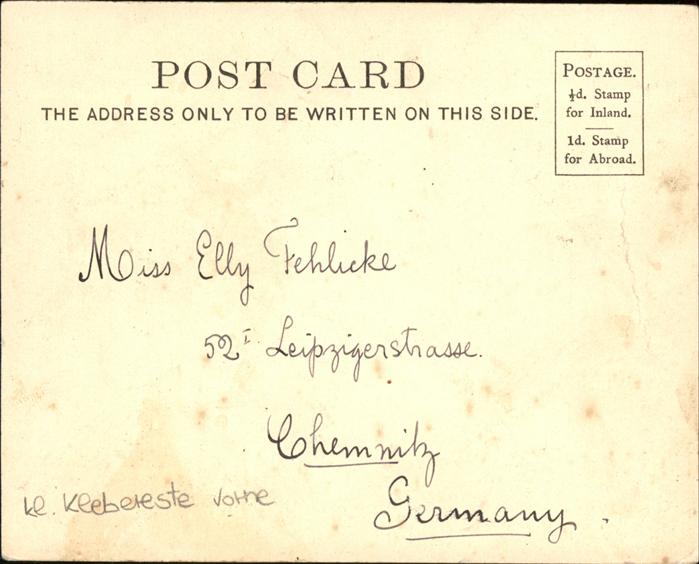 POST CARD
THE ADDRESS ONLY TO BE WRITTEN ON THIS SIDE.
POSTAGE.
½d. Stamp
for Inland.
1d. Stamp
for Abroad.
Miss Elly Fehlicke
52ᴵ Leipzigerstrasse.
Chemnitz
Germany.
kl. Klebereste vorne